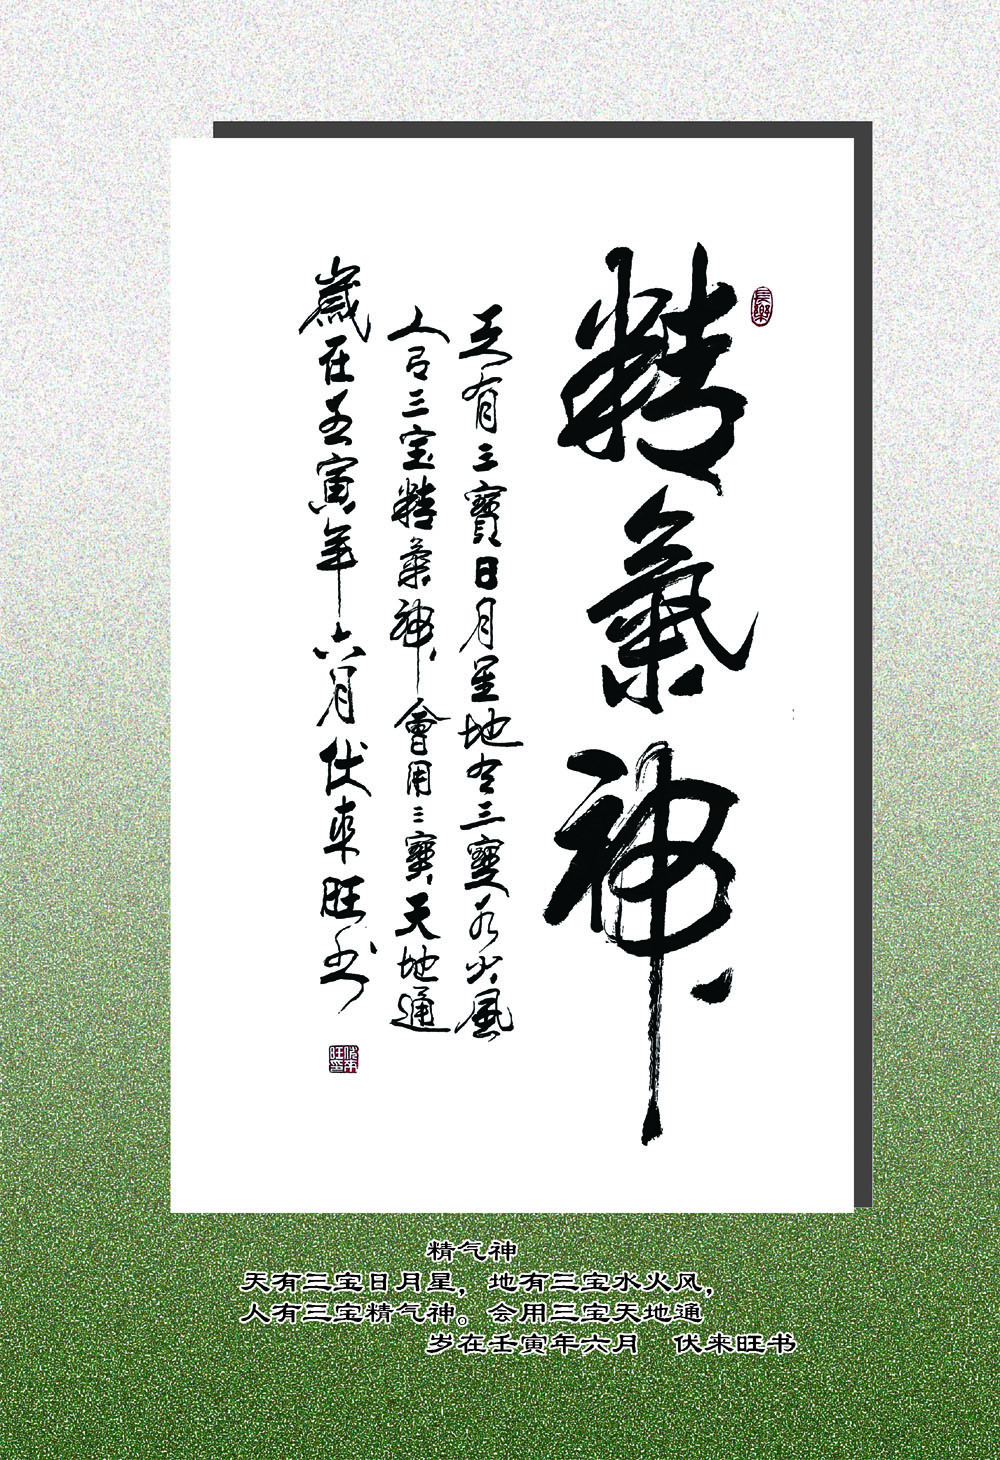 精氣神
天有三寶日月星地有三寶水火風
人有三宝精氣神會用三寶天地通
歲在壬寅年六月伏來旺书
精气神
天有三宝日月星，地有三宝水火风，
人有三宝精气神。会用三宝天地通
岁在壬寅年六月　伏来旺书